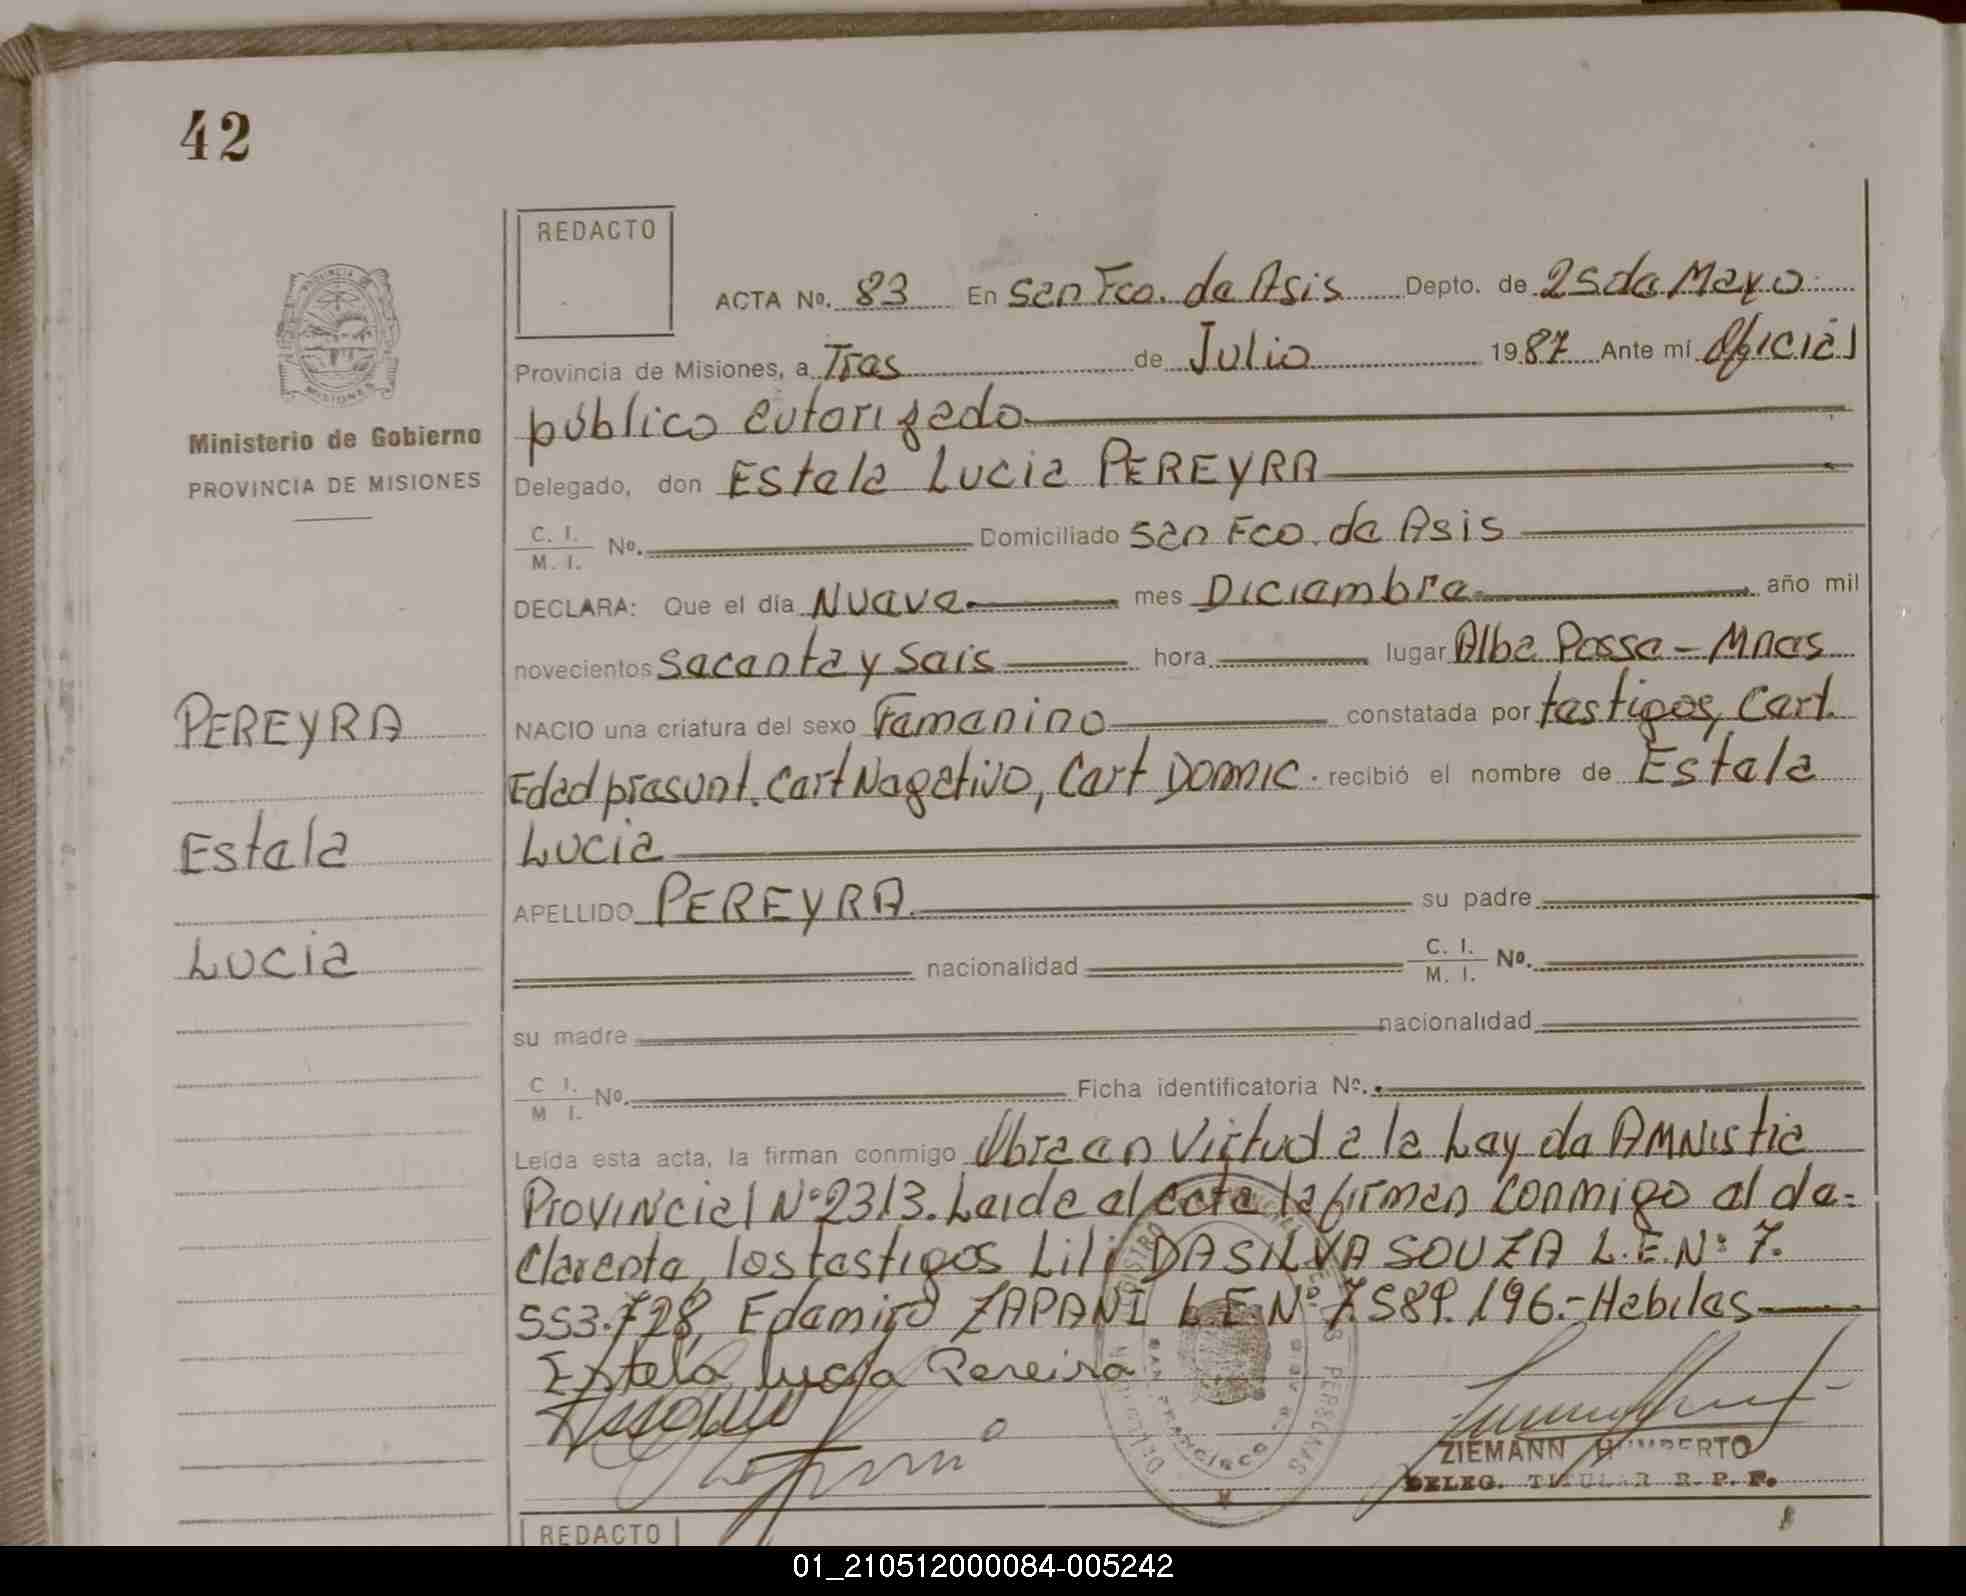 42
REDACTO
ACTA Nº. 83 En San Fco. de Asis Depto. de 25 de Mayo
Provincia de Misiones, a Tres de Julio 1987 Ante mí Oficial
público autorizado
Ministerio de Gobierno
PROVINCIA DE MISIONES
Delegado, don Estela Lucia PEREYRA
C. I. / M. I. Nº. Domiciliado San Fco. de Asis
DECLARA: Que el día Nueve mes Diciembre año mil
novecientos sesenta y seis hora lugar Alba Posse - Mnes
NACIO una criatura del sexo Femenino constatada por testigos, Cert.
Edad presunt. Cert Negativo, Cert Domic. recibió el nombre de Estela
Lucia
PEREYRA
Estela
Lucia
APELLIDO PEREYRA su padre
nacionalidad C. I. / M. I. Nº.
su madre nacionalidad
C I. / M I. Nº. Ficha identificatoria Nº.
Leída esta acta, la firman conmigo Obra en Virtud a la Ley de AMNistia
Provincial Nº 2313. Leida el acta la firman conmigo el de-
clarente, los testigos Lili DA SILVA SOUZA L.E. Nº 7.
553.728, Edemiro ZAPANI L.E. Nº 7.589.196.- Habiles
Estela Lucia Pereira
ZIEMANN HUMBERTO
DELEG. TITULAR R. P. P.
REDACTO
01_210512000084-005242